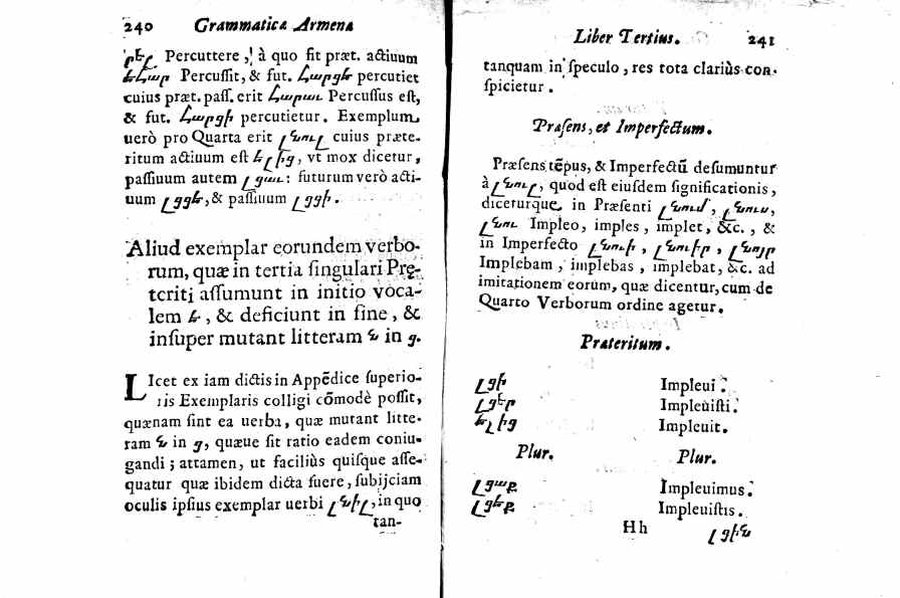 240 Grammatica Armena
րել Percuttere, à quo fit præt. actiuum
եհար Percussit, & fut. հարցե percutiet
cuius præt. pass. erit հարաւ Percussus est,
& fut. հարցի percutietur. Exemplum
uerò pro Quarta erit լնուլ cuius præte-
ritum actiuum est ելից, vt mox dicetur,
passiuum autem լցաւ: futurum verò acti-
uum լցցե, & passiuum լցցի.
Aliud exemplar eorundem verbo-
rum, quæ in tertia singulari Prę-
teriti assumunt in initio voca-
lem ե, & deficiunt in fine, &
insuper mutant litteram ն in ց.
LIcet ex iam dictis in Appēdice superio-
ris Exemplaris colligi cōmodè possit,
quænam sint ea uerba, quæ mutant litte-
ram ն in ց, quæue sit ratio eadem coniu-
gandi; attamen, ut faciliùs quisque asse-
quatur quæ ibidem dicta fuere, subijciam
oculis ipsius exemplar uerbi լնիլ, in quo
tan-
Liber Tertius. 241
tanquam in speculo, res tota clariùs con-
spicietur.
Præsens, et Imperfectum.
Præsens tēpus, & Imperfectū desumuntur
à լնուլ, quod est eiusdem significationis,
diceturque in Præsenti լնում, լնուս,
լնու Impleo, imples, implet, &c., &
in Imperfecto լնուի, լնուիր, լնոյր
Implebam, implebas, implebat, &c. ad
imitationem eorum, quæ dicentur, cum de
Quarto Verborum ordine agetur.
Præteritum.
լցի Impleui.
լցեր Impleuisti.
ելից Impleuit.
Plur. Plur.
լցաք Impleuimus.
լցեք Impleuistis.
Hh լցին